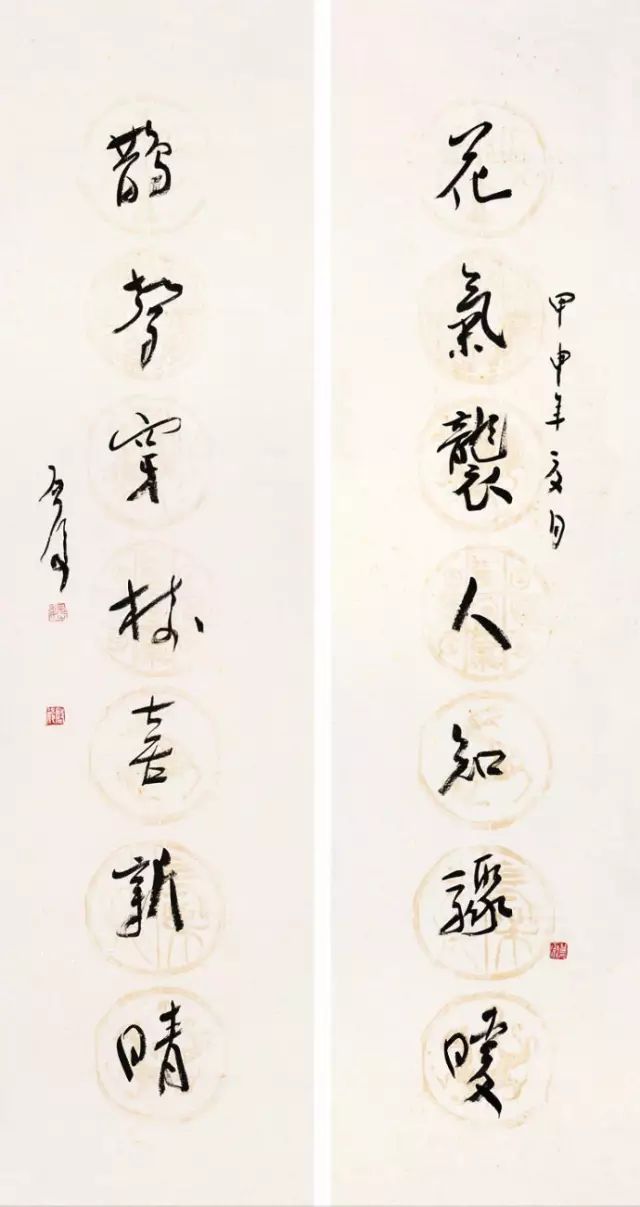 甲申年夏月
花氣襲人知驟暖
鵲聲穿樹喜新晴